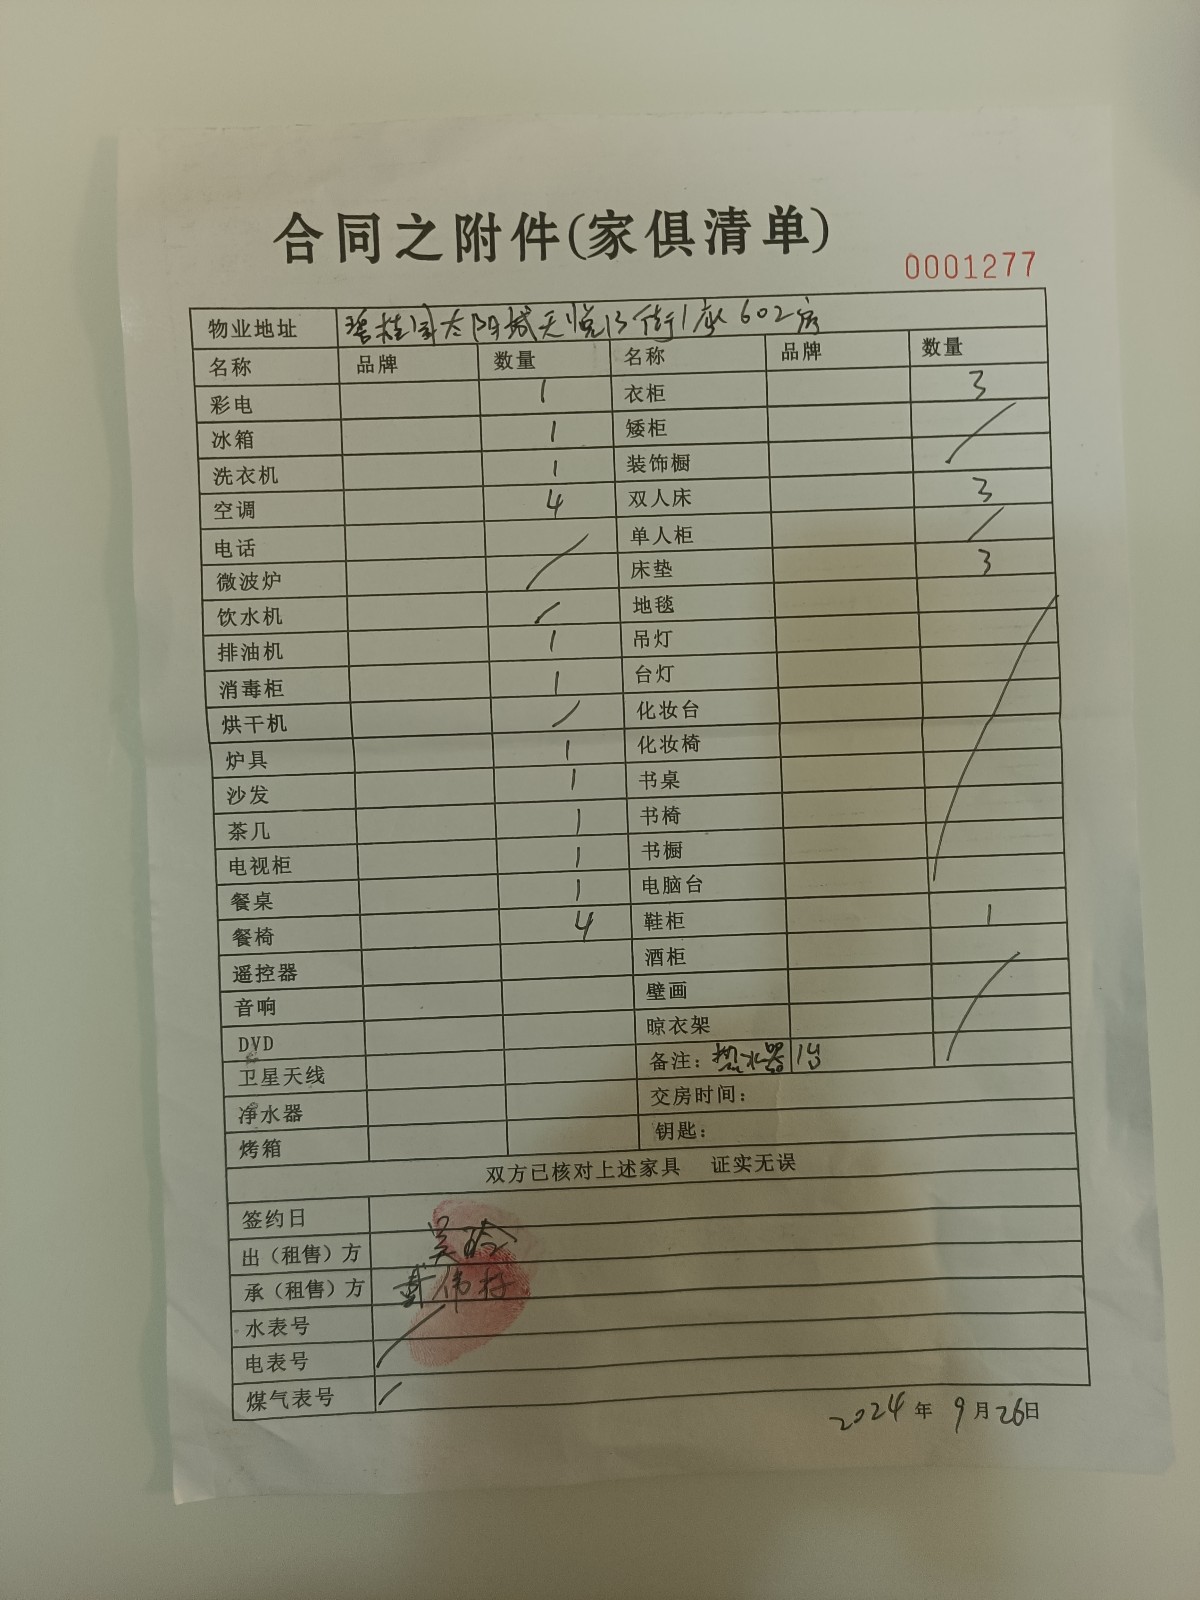 合同之附件(家俱清单)
0001277
物业地址 碧桂园太阳城天悦13街1座602房
名称 品牌 数量 名称 品牌 数量
彩电 1 衣柜 3
冰箱 1 矮柜 /
洗衣机 1 装饰橱
空调 4 双人床 3
电话 / 单人柜 /
微波炉 床垫 3
饮水机 / 地毯 /
排油机 1 吊灯
消毒柜 1 台灯
烘干机 / 化妆台
炉具 1 化妆椅
沙发 1 书桌
茶几 1 书椅
电视柜 1 书橱
餐桌 1 电脑台
餐椅 4 鞋柜 1
遥控器 酒柜 /
音响 壁画
DVD 晾衣架
卫星天线 备注：热水器1台
净水器 交房时间：
烤箱 钥匙：
双方已核对上述家具 证实无误
签约日
出（租售）方 吴
承（租售）方
水表号 /
电表号
煤气表号 /
2024年9月26日